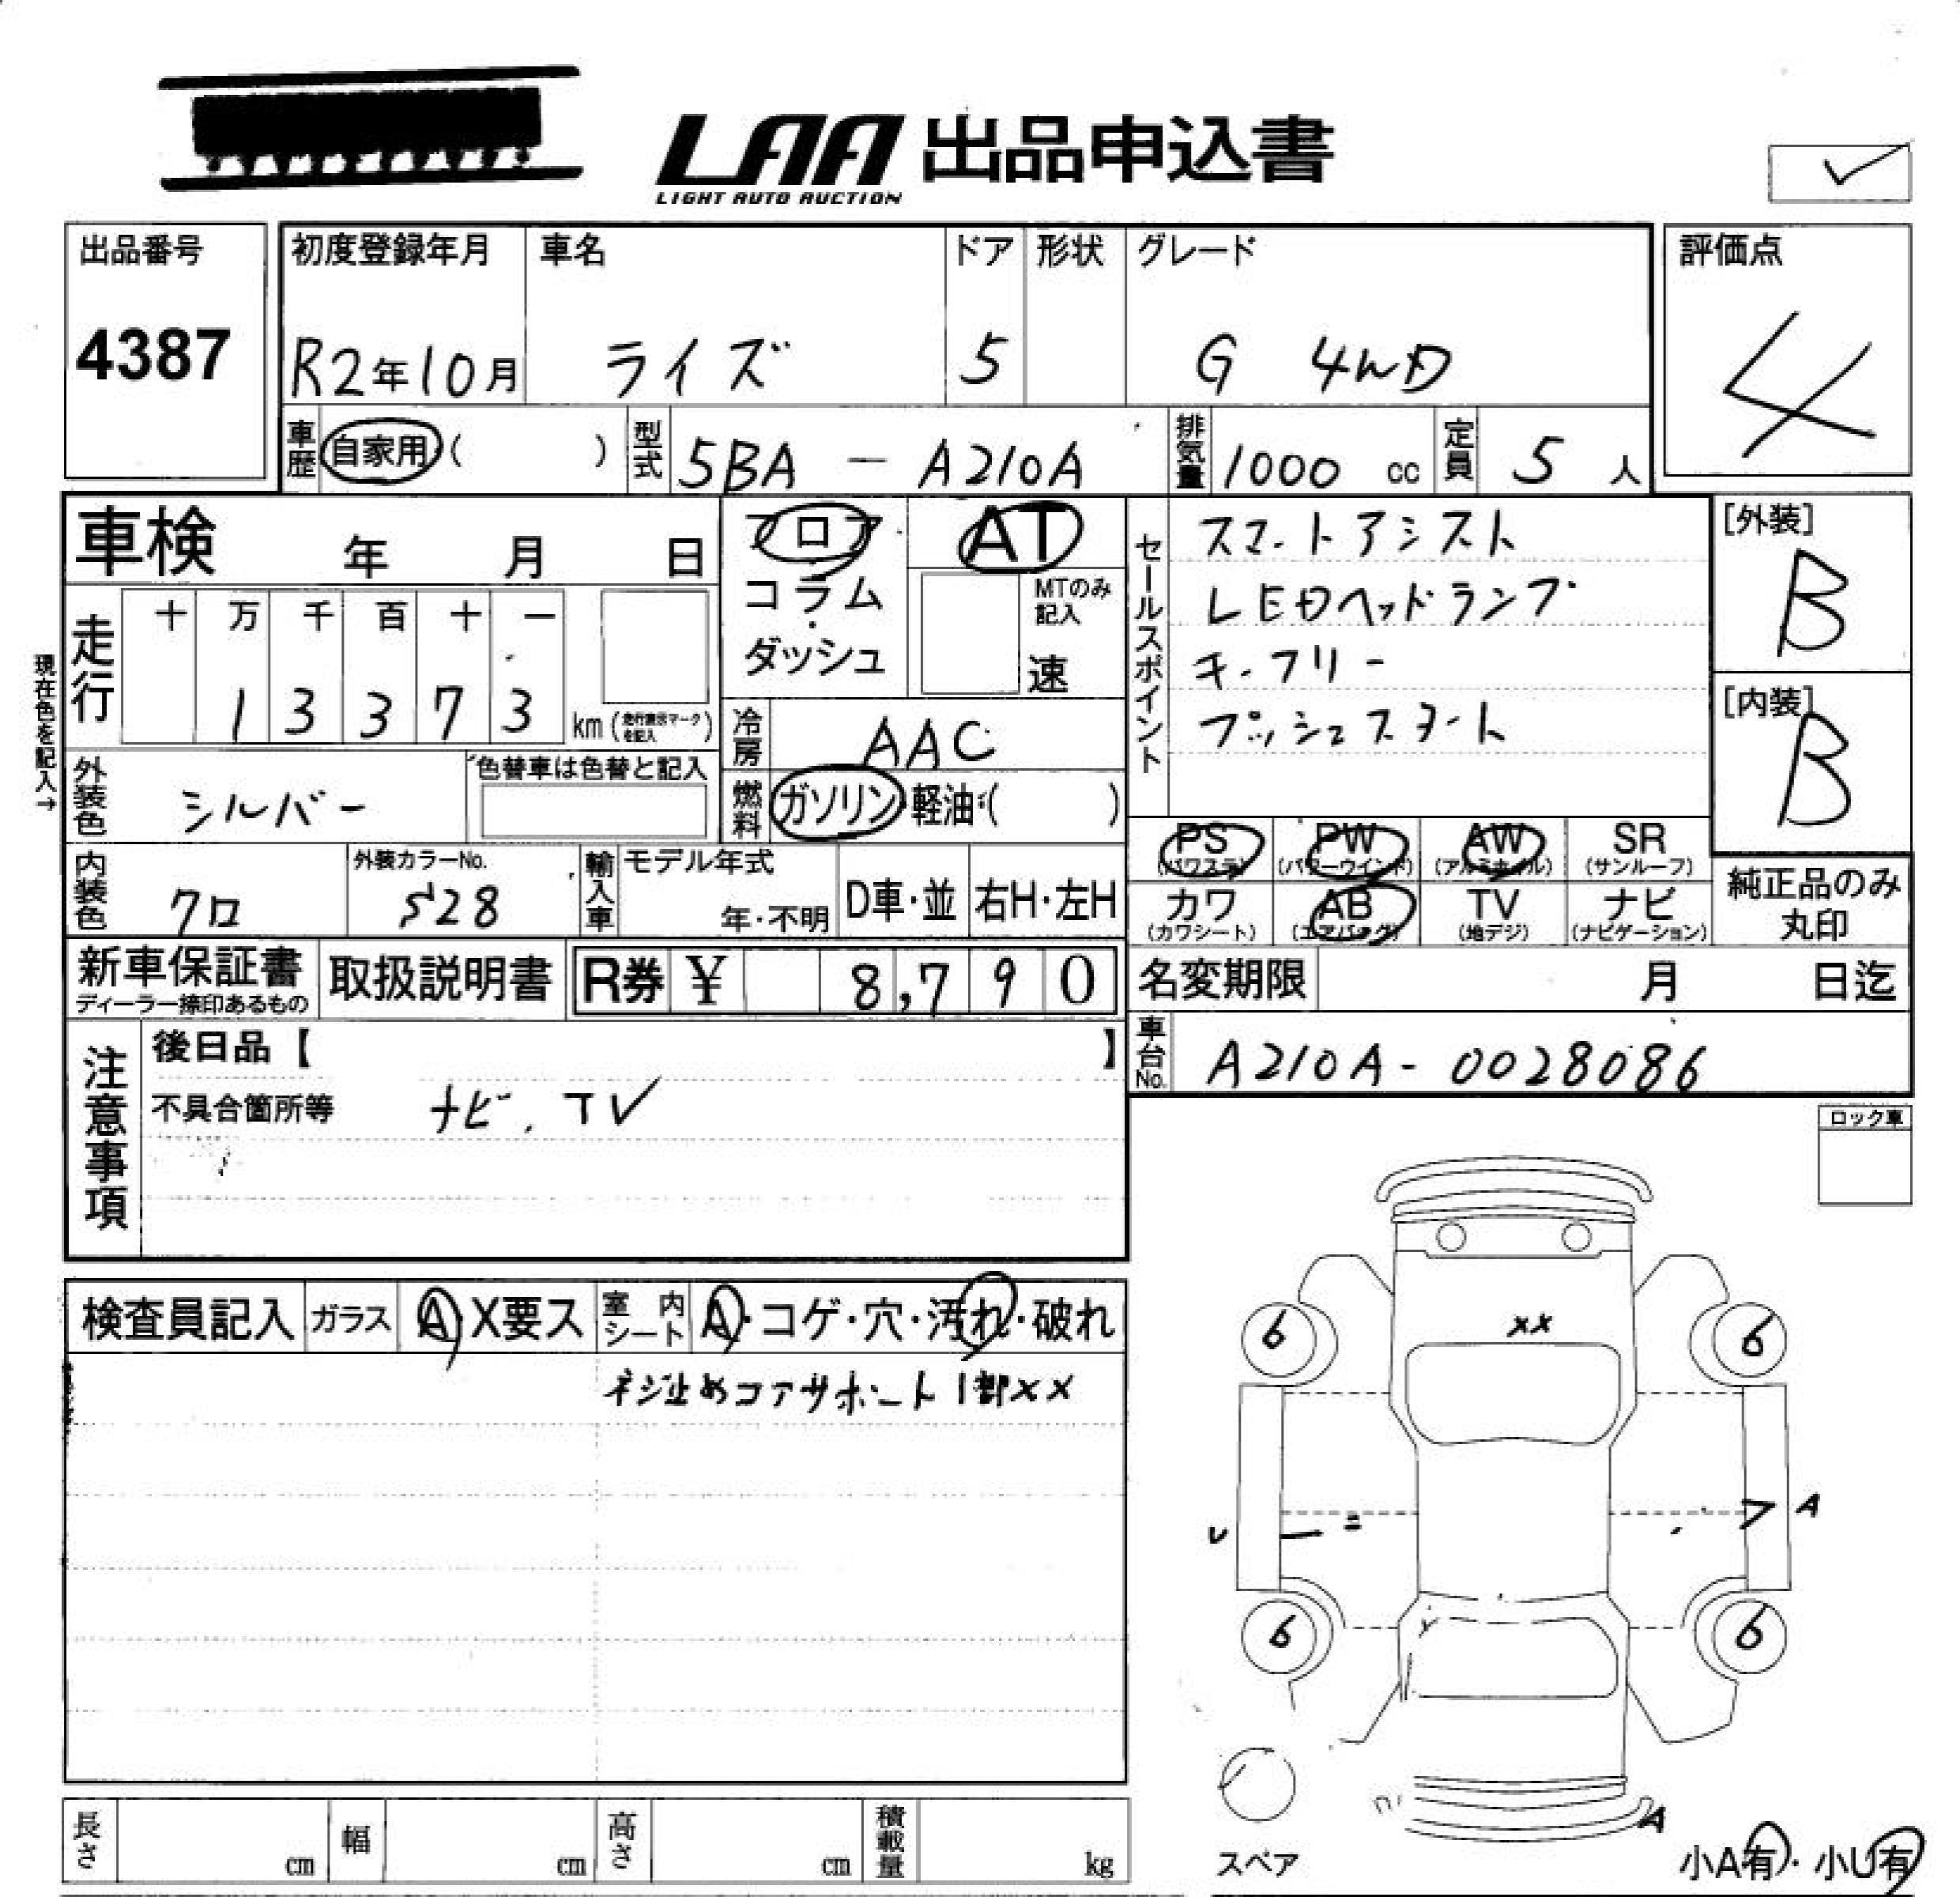 LAA 出品申込書
LIGHT AUTO AUCTION
出品番号
4387
初度登録年月 車名 ドア 形状 グレード
R2年10月 ライズ 5 G 4WD
評価点
4
車歴 自家用( ) 型式 5BA - A210A 排気量 1000 cc 定員 5 人
車検 年 月 日
フロア
コラム
ダッシュ
AT
MTのみ
記入
速
セールスポイント
スマートアシスト
LEDヘッドランプ
キーフリー
プッシュスタート
[外装]
B
[内装]
B
現在色を記入→
走行 十 万 千 百 十 一
1 3 3 7 3 km (走行表示マークを記入)
冷房 AAC
外装色 シルバー 色替車は色替と記入
燃料 ガソリン・軽油・( )
PS (パワステ) PW (パワーウインド) AW (アルミホイル) SR (サンルーフ)
カワ (カワシート) AB (エアバッグ) TV (地デジ) ナビ (ナビゲーション)
純正品のみ
丸印
内装色 クロ 外装カラーNo. S28 輸入車 モデル年式 年・不明 D車・並 右H・左H
新車保証書 取扱説明書 R券 ¥ 8,790
ディーラー捺印あるもの
名変期限 月 日迄
車台No. A210A-0028086
注意事項
後日品【 】
不具合箇所等 ナビ、TV
ロック車
検査員記入 ガラス A X要ス 室内シート A・コゲ・穴・汚れ・破れ
ネジ止めコアサポート1部××
××
6 6
U A
6 6
A
スペア
小A有・小U有
長さ cm 幅 cm 高さ cm 積載量 kg